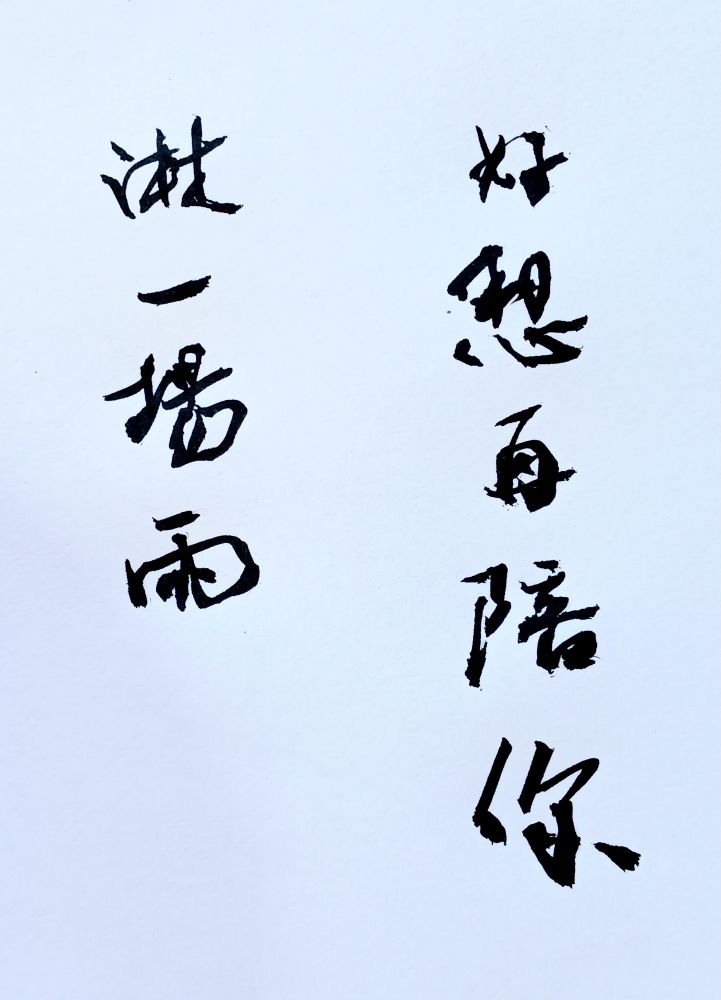 好想再陪你
淋一场雨